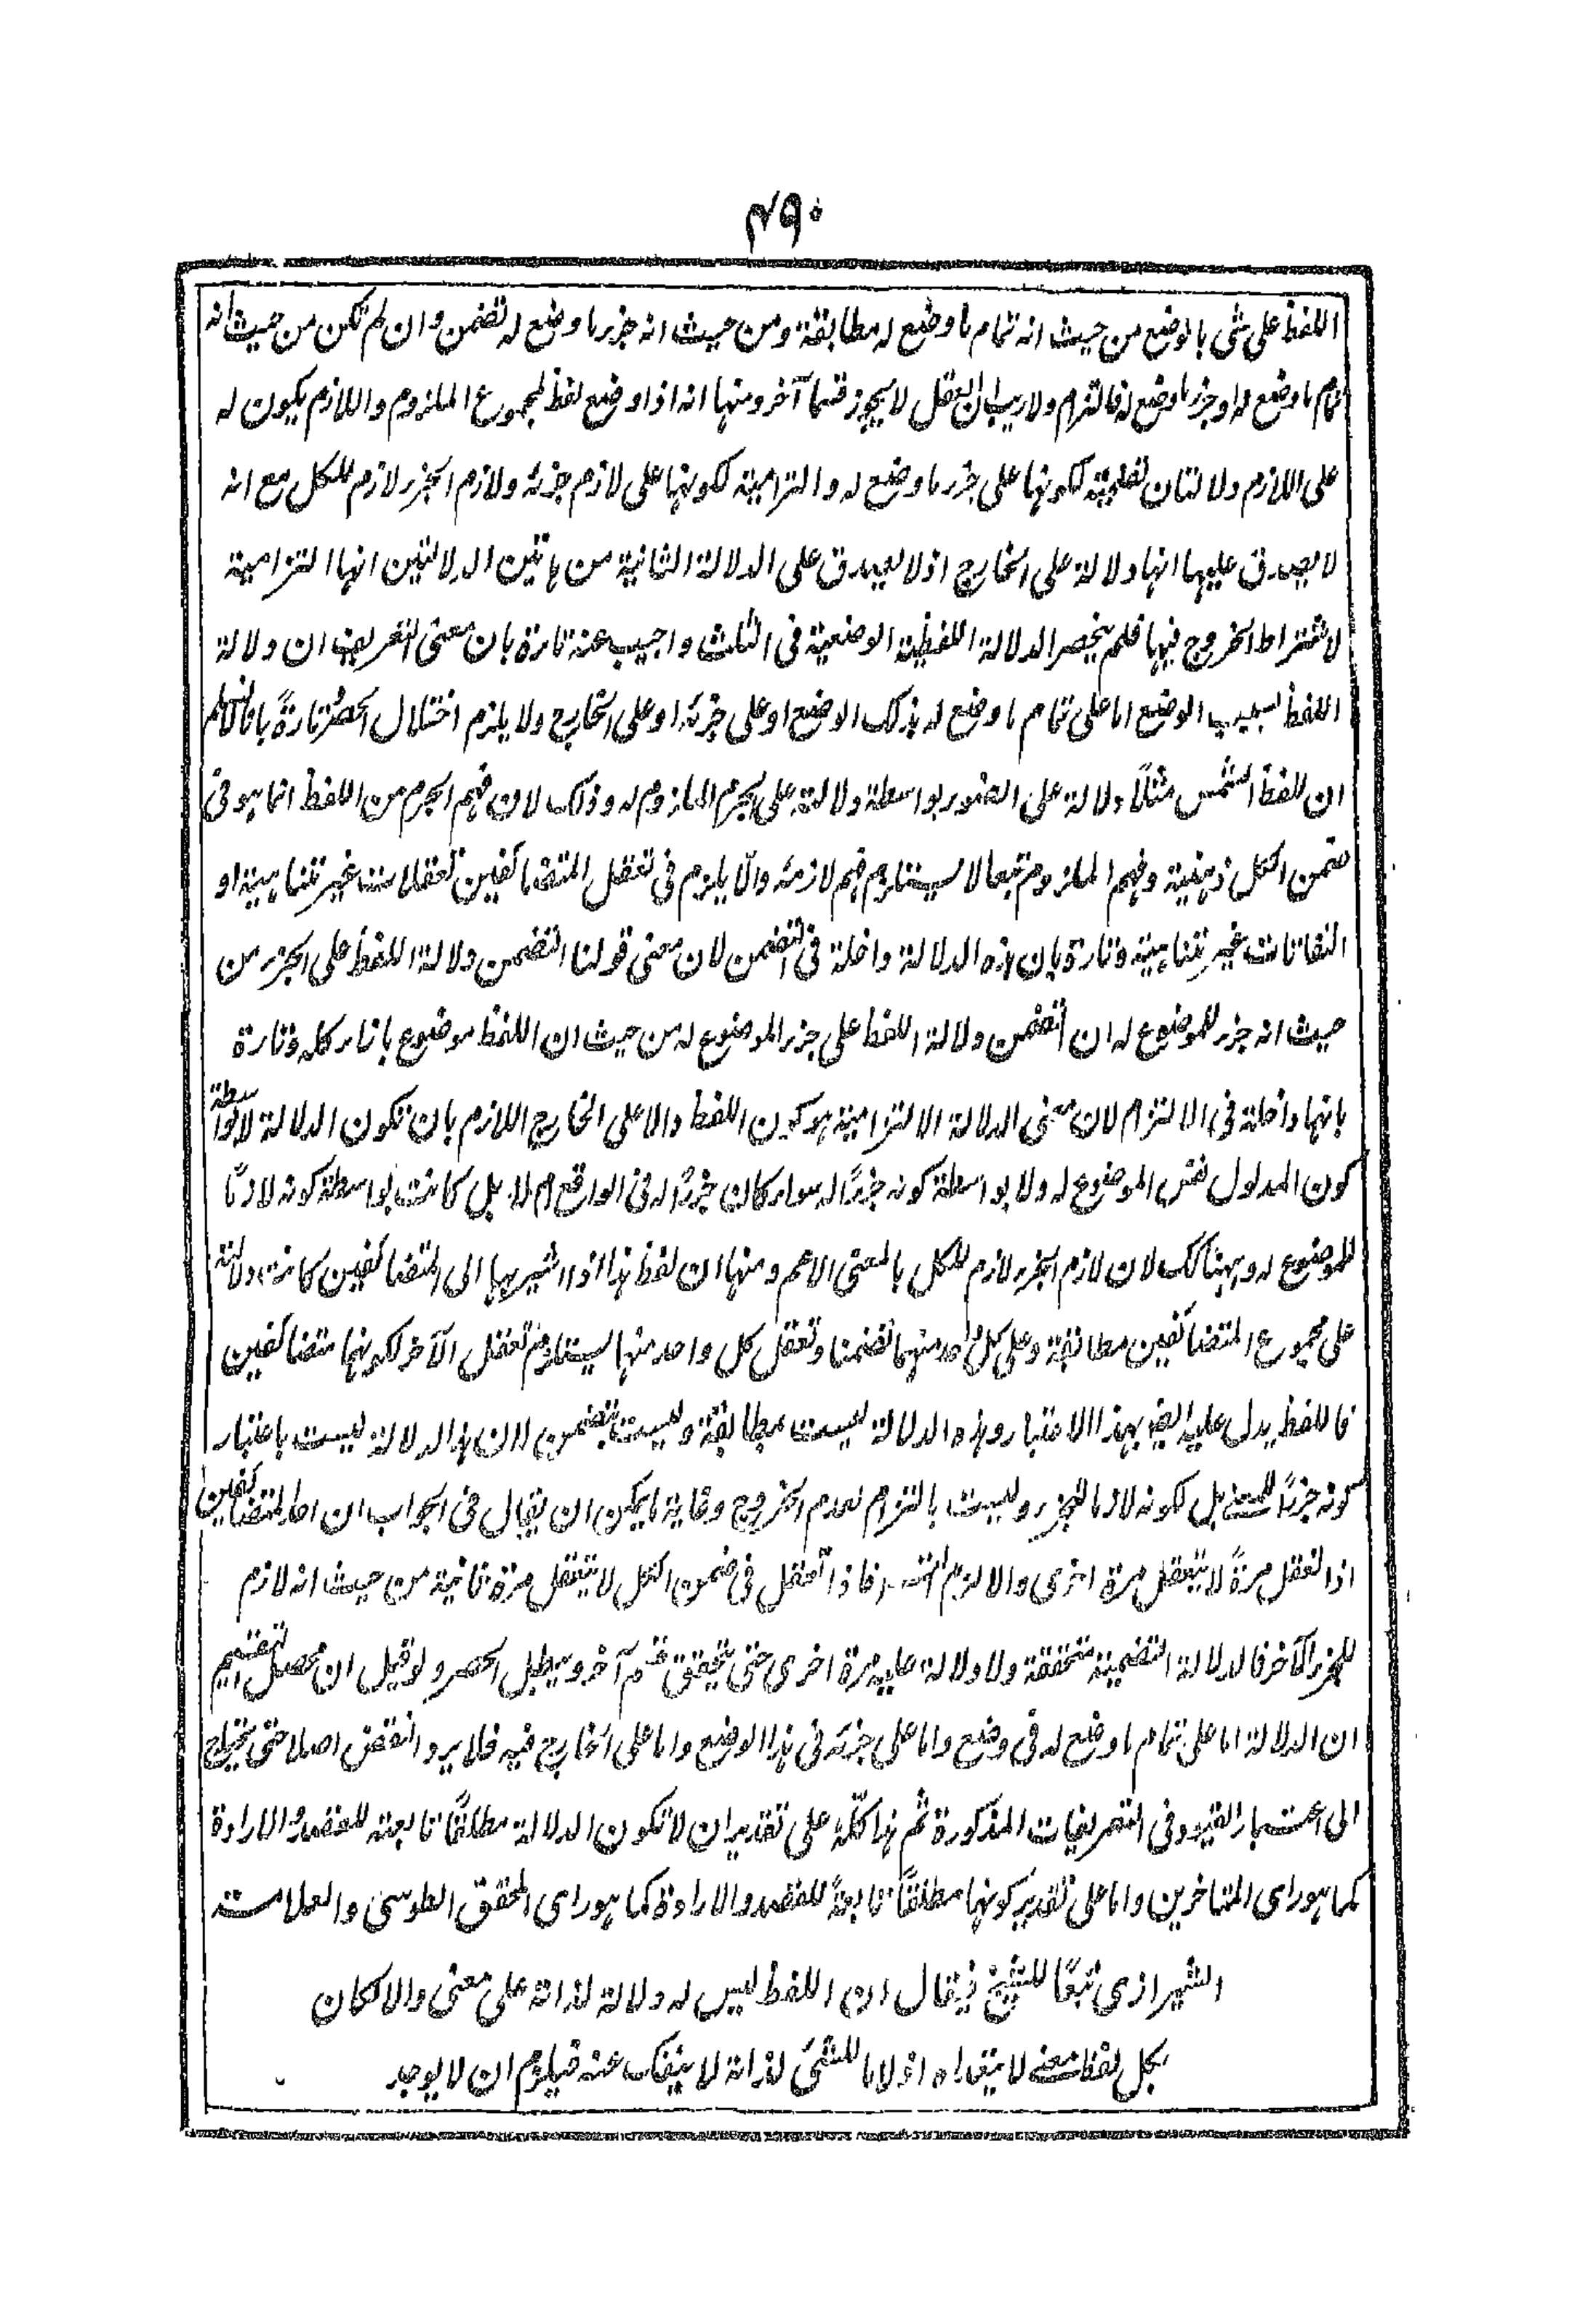 ۴۹۰
اللفظ على شى بالوضع من حيث انه تمام ما وضع له مطابقة ومن حيث انه جزر ما وضع له تضمن وان لم تكن من حيث انه
تمام ما وضع له او جزر ما وضع له فالتزام ولا ريب ان العقل لا يجوز قسما آخر ومنها انه اذا وضع لفظ لمجموع الملزوم واللازم يكون له
على اللازم دلالتان تضمنية لكونها على جزر ما وضع له والتزامية لكونها على لازم جزئه ولازم الجزر لازم للكل مع انه
لا يصدق عليها انها دلالة على الخارج اذ لا يصدق على الدلالة الثانية من هاتين الدلالتين انها التزامية
لاشتراط الخروج فيها فلم ينحصر الدلالة اللفظية الوضعية فى الثلث واجيب عنه تارة بان معنى التعريف ان دلالة
اللفظ بسبب الوضع اما على تمام ما وضع له بذلك الوضع او على جزئه او على الخارج ولا يلزم اختلال الحصر وتارةً بانا لا نسلم
ان للفظ الشمس مثلاً دلالة على الضور بواسطة دلالته على الجرم الملزوم له وذلك لان فهم الجرم من اللفظ انما هو فى
ضمن الكل ذهنية وفهم الملزوم تبعا لا يستلزم فهم لازمه والّا يلزم فى تعقل المتضائفين تعقلات غير متناهية او
التفاتات غير متناهية وتارة بان هذه الدلالة داخلة فى التضمن لان معنى قولنا التضمن دلالة اللفظ على الجزر من
حيث انه جزر للموضوع له ان التضمن دلالة اللفظ على جزر الموضوع له من حيث ان اللفظ موضوع بازار كله وتارة
بانها داخلة فى الالتزام لان معنى الدلالة الالتزامية هو كون اللفظ دالا على الخارج اللازم بان تكون الدلالة لا بواسطة
كون المدلول نفس الموضوع له ولا بواسطة كونه جزرًا له سوار كان جزرًا له فى الواقع ام لا بل كانت بواسطة كونه لازمًا
للموضوع له وههنا كك لان لازم الجزر لازم للكل بالمعنى الاعم ومنها ان لفظ هذا اذا اشير بها الى المتضائفين كانت دلالته
على مجموع المتضائفين مطابقة وعلى كل واحد منهما تضمنا وتعقل كل واحد منهما يستلزم تعقل الآخر لكونهما متضائفين
فاللفظ يدل عليه ايضا بهذا الاعتبار وهذه الدلالة ليست بمطابقة وليست بتضمن لان هذه الدلالة ليست باعتبار
كونه جزرًا للمعنى بل لكونه لازما للجزر وليست بالتزام لعدم الخروج وغاية ما يمكن ان يقال فى الجواب ان احد المتضائفين
اذا تعقل مرةً لا يتعقل مرة اخرى والا لزم فاذا تعقل فى ضمن الكل لا يتعقل مرة ثانية من حيث انه لازم
للجزر الآخر فالدلالة التضمنية متحققة ولا دلالة عليه مرة اخرى حتى يتحقق قسم آخر ويبطل الحصر ولو قيل ان محصل التقسيم
ان الدلالة اما على تمام ما وضع له فى وضع واما على جزئه فى هذا الوضع واما على الخارج فيه فلا يرد النقض اصلا حتى يحتاج
الى اعتبار القيود فى التعريفات المذكورة ثم هذا كلّه على تقدير ان لا تكون الدلالة مطلقًا تابعة للقصد والارادة
كما هو راى المتاخرين واما على تقدير كونها مطلقًا تابعةً للقصد والارادة كما هو راى المحقق الطوسى والعلامة
الشيرازى تبعًا للشيخ فيقال ان اللفظ ليس له دلالة لذاته على معنى والا لكان
لكل لفظ معنى لا يتعداه اذ لا ما للشئ لذاته لا ينفك عنه فيلزم ان لا يوجد